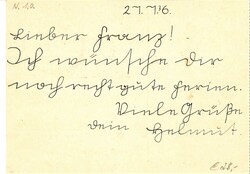 27.7.76.
Lieber Franz!
Ich wünsche dir
noch recht gute Ferien.
Viele Grüße
dein Helmut.